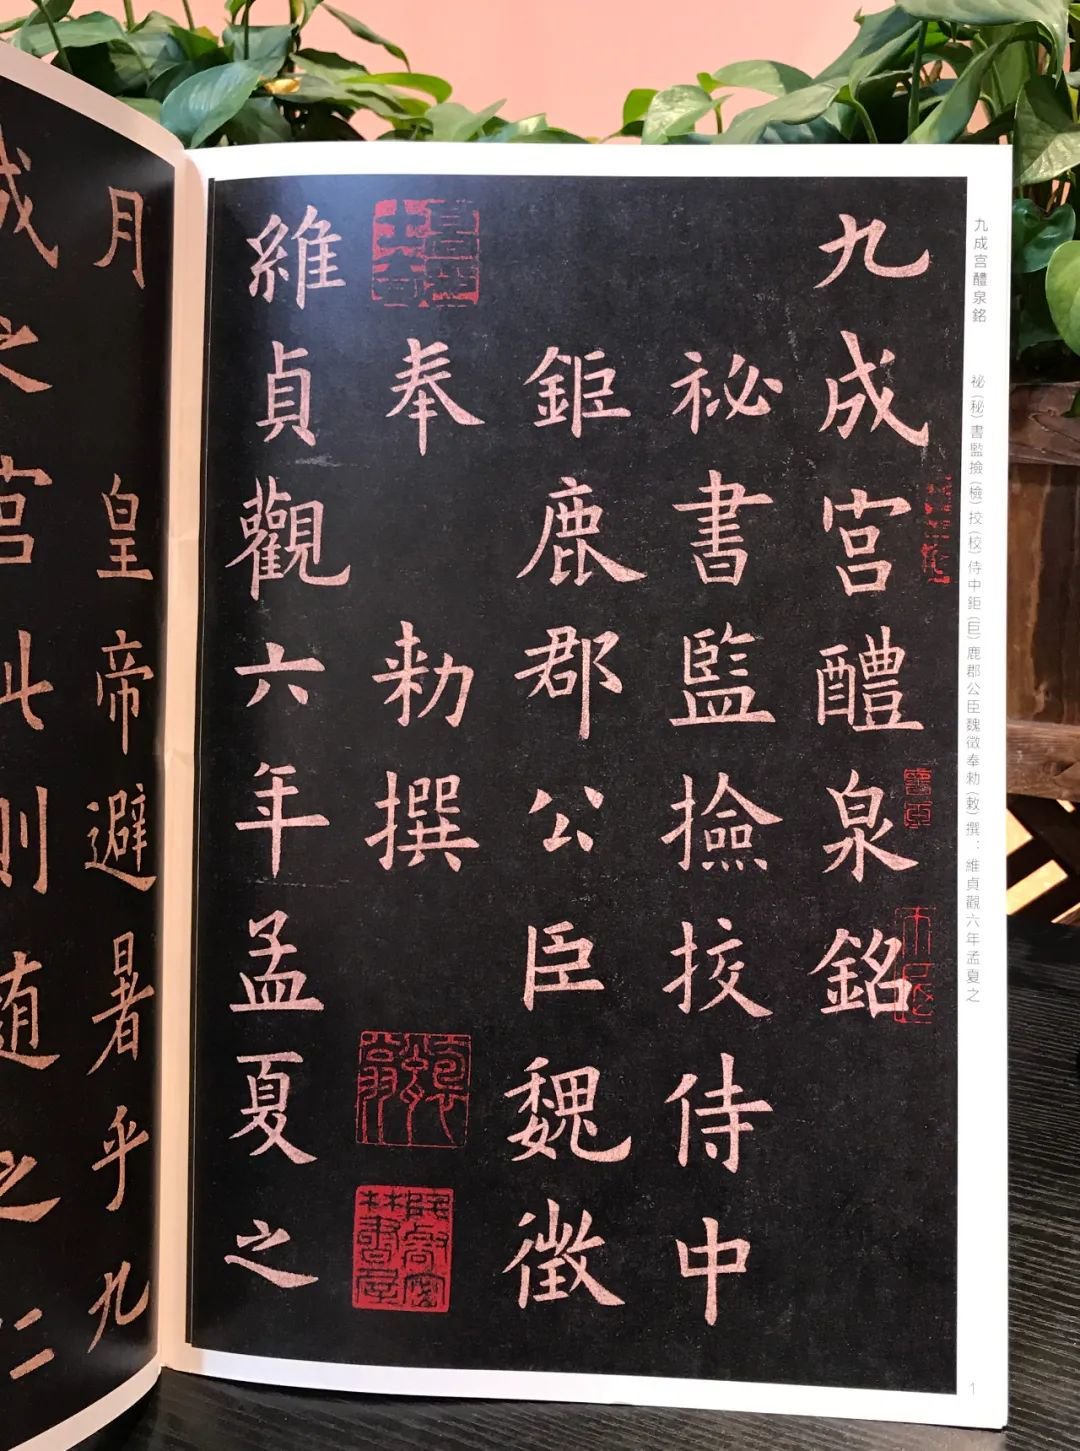 九成宫醴泉銘
祕書監撿挍侍中
鉅鹿郡公臣魏徵
奉 勑撰
維貞觀六年孟夏之
月 皇帝避暑乎九
成之宫此則随之仁
九成宫醴泉銘
祕(秘)書監撿(檢)挍(校)侍中鉅(巨)鹿郡公臣魏徵奉勑(敕)撰：維貞觀六年孟夏之
1